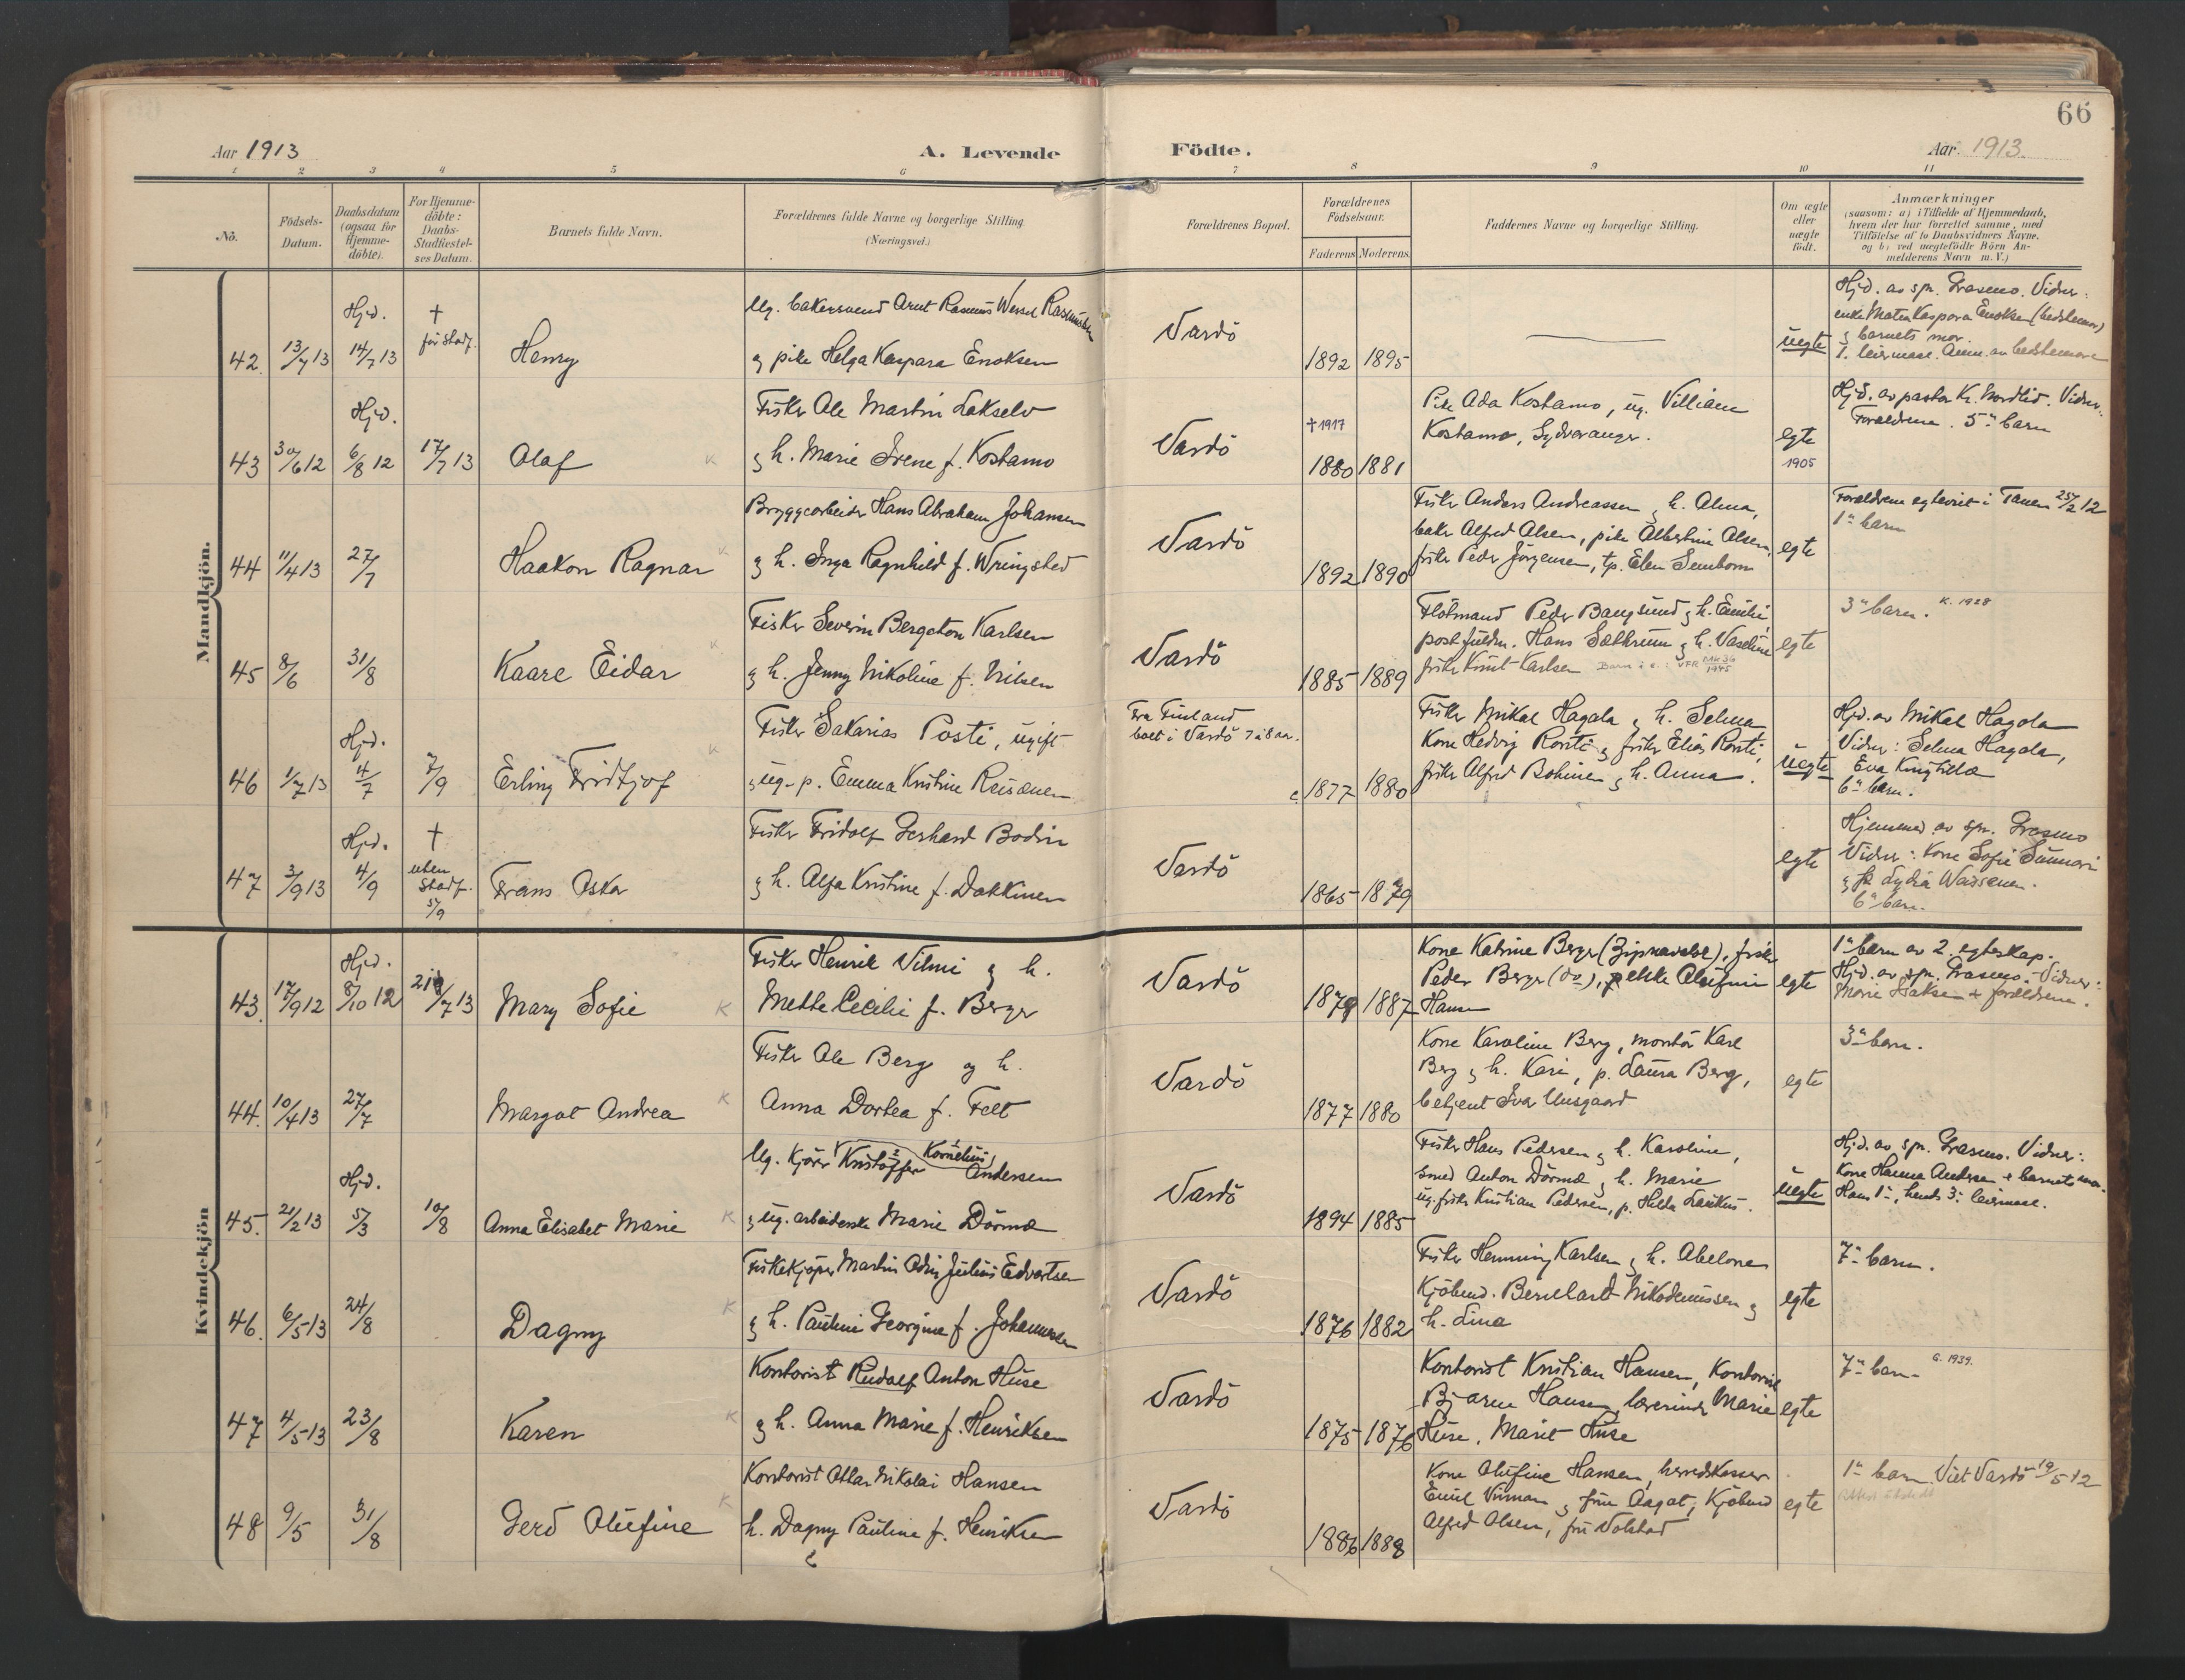 66
Aar 1913
A. Levende
Födte.
Aar 1913.
1 2 3 4 5 6 7 8 9 10 11
No.
Födsels-
Datum.
Daabsdatum
(ogsaa for
Hjemme-
döbte).
For Hjemme-
döbte:
Daabs-
Stadfæstel-
ses Datum.
Barnets fulde Navn.
Forældrenes fulde Navne og borgerlige Stilling
(Næringsvei.)
Forældrenes Bopæl.
Forældrenes
Födselsaar.
Faderens Moderens
Faddernes Navne og borgerlige Stilling.
Om ægte
eller
uægte
födt.
Anmærkninger
(saasom: a) i Tilfælde af Hjemmedaab,
hvem der har forrettet samme, med
Tilföielse af to Daabsvidners Navne,
og b) ved uægtefödte Börn An-
melderens Navn m. V.)
Mandkjön.
42. 13/7 13
Hjd.
14/7 13
†
før stadf.
Henry
Ug. bakersvend Arnt Rasmus Wessel Rasmussen
og pike Helga Kaspara Enoksen
Vardö
1892 1895
uegte
Hjd. av spr. Grasmo. Vidner:
enke Maten Kaspara Enoksen (bedstemor)
g barnets mor.
1. leiermaal. Anm. av bedstemore
43 30/6 12
Hjd.
6/8 12
17/7 13
Olaf
K
Fisker Ole Martin Lakselv
g h. Marie Irene f. Kostamo
Vardö
† 1917
1880 1881
Pike Ada Kostamo, ug. Villiam
Kostamo, Sydvaranger.
egte
1905
Hjd. av pastor Kr. Nordlid. Vidner:
Forældrene. 5te barn
44 11/4 13
27/7
Haakon Ragnar
K
Bryggearbeider Hans Abraham Johansen
g h. Inga Ragnhild f. Wringsted
Vardö
1892 1890
Fisker Anders Andreassen g h. Alma,
baker Alfred Olsen, pike Albertine Olsen,
fisker Peder Jörgensen, tp. Elen Semborn
egte
Forældrene egteviet i Tanen 25/2 12
1te barn
45 8/6
31/8
Kaare Eidar
K
Fisker Severin Bergeton Karlsen
g h. Jenny Nikoline f. Nilsen
Vardö
1885 1889
Flötmand Peder Bangsund g h. Emilie,
postfuldm. Hans Sathrum g h. Vaseline
fisker Knut Karlsen
egte
3te barn. K. 1928
46 1/7 13
Hjd.
4/7
7/9
Erling Fridtjof
K
Fisker Sakarias Posti, ugift
g ug. p. Emma Kristine Reisänen
Fra Finland
boet i Vardö 7 a 8 aar.
c. 1877 1880
Fisker Mikal Hagala g h. Selma
Kone Hedvig Ronti g fisker Elias Ronti,
fisker Alfred Bohinen g h. Anna.
uegte
Hjd. av Mikal Hagala
Vidner: Selma Hagala,
Eva
6te barn.
47 3/9 13
Hjd.
4/9
†
uten
Stadf.
5/9
Frans Oskar
Fisker Fridolf Gerhard Bodin
g h. Alfa Kristine f. Dakkinen
Vardö
1865 1879
egte
Hjemmed. av spr. Grasmo
Vidner: Kone Sofie Sunnari
g fr. Lydia Waisenen.
6te barn.
Kvindekjön
43. 17/9 12
Hjd.
8/10 12
21/7 13
Mary Sofie
K
Fisker Henrik Vilmi g h.
Mette Cecilie f. Berger
Vardö
1879 1887
Kone Katrine Berger (Gipsnavolok), fisker
Peder Berger (do), pike Olufine
Hansen
egte
1te barn av 2. egteskap.
Hjd. av spr. Grasmo. Vidner:
Marie Isaksen + forældrene.
44. 10/4 13
27/7
Margot Andrea
K
Fisker Ole Berg og h.
Anna Dortea f. Felt
Vardö
1877 1880
Kone Karoline Berg, montör Karl
Berg g h. Kari, p. Laura Berg,
betjent Ivar Unsgaard
egte
3te barn.
45. 21/2 13
Hjd.
5/3
10/8
Anna Elisabet Marie
K
Ug. kjörer Kristoffer Kornelius Andersen
g ug. arbeiderske Marie Dörmo
Vardö
1894 1885
Fisker Hans Pedersen g h. Karoline,
smed Anton Dörmo g h. Marie
ug. fisker Kristian Pedersen, p. Hilda Laukus.
uegte
Hjd. av spr. Grasmo. Vidner:
Kone Hanna Andersen + barnets mor.
Hans 1te, hends 3. leiermaal.
46. 6/5 13
24/8
Dagny
K
Fiskekjöper Martin Odin Julius Edvartsen
g h. Pauline Georgine f. Johannesen
Vardö
1876 1882
Fisker Henning Karlsen g h. Abelone
Kjöbmd. Bernhard Nikodemussen g
h. Lina
egte
7te barn.
47 4/5 13
23/8
Karen
K
Kontorist Rudolf Anton Huse
g h. Anna Marie f. Henriksen
Vardö
1875 1876
Kontorist Kristian Hansen, Kontorist
Bjarne Hansen, lærerinde Marie
Huse, Marit Huse
egte
7te barn G. 1939.
48 9/5
31/8
Gerd Olufine
K
Kontorist Ottar Nikolai Hansen
h. Dagny Pauline f. Henriksen
Vardö
1886 1888
Kone Olufine Hansen, herredskasser
Emil Virman g frue Aagot, Kjöbmd
Alfred Olsen, fru Volstad
egte
1te barn Viet Vardö 19/5 12